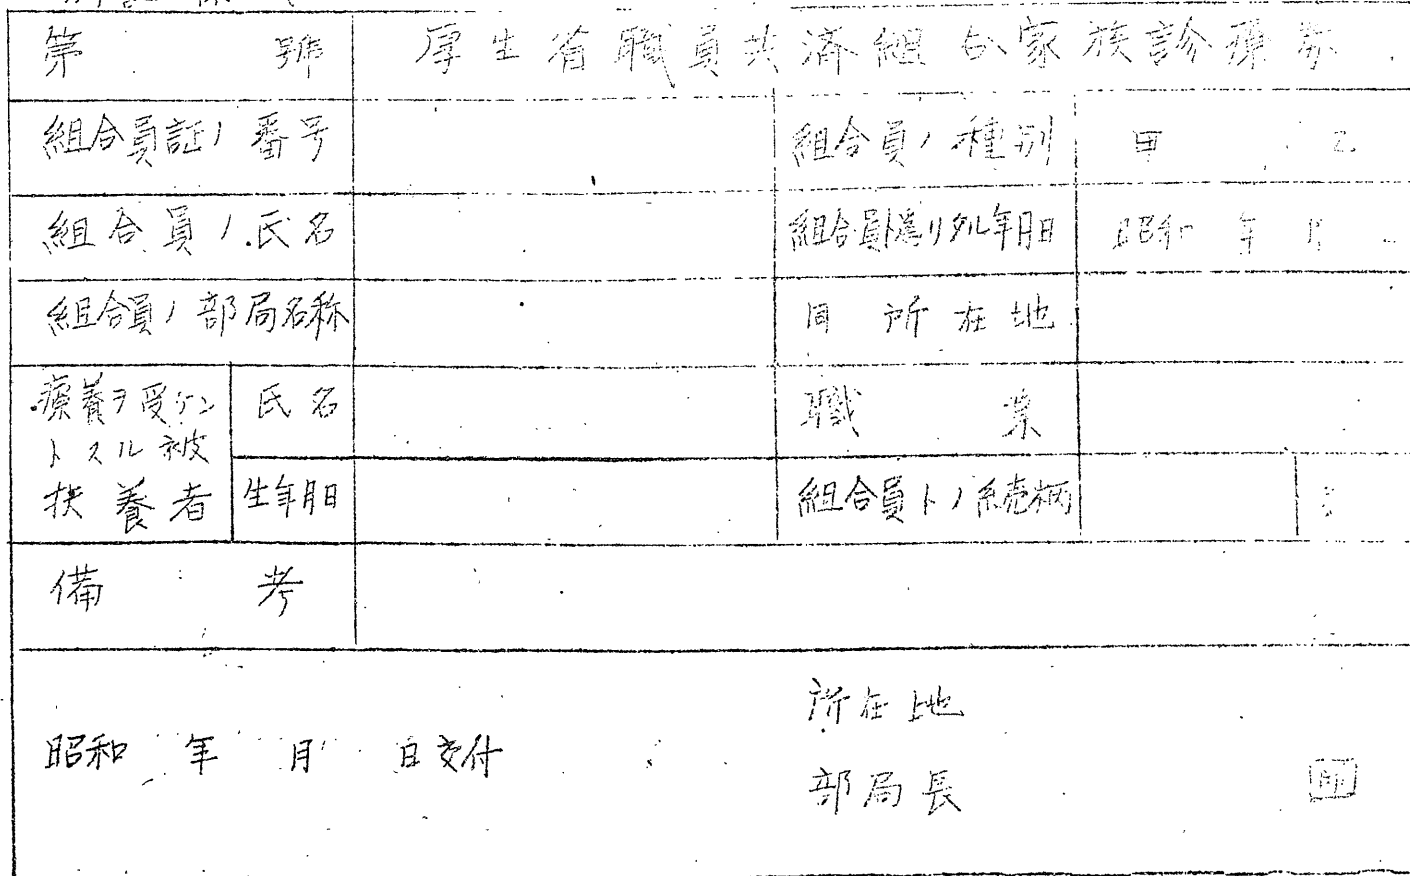 第 號 厚生省職員共済組合家族診療券
組合員証ノ番号 組合員ノ種別 甲 乙
組合員ノ氏名 組合員ト為リタル年月日 昭和 年 月
組合員ノ部局名称 同所在地
療養ヲ受ケン
トスル被
扶養者
氏名 職業
生年月日 組合員トノ続柄
備考
所在地
昭和 年 月 日交付
部局長 印